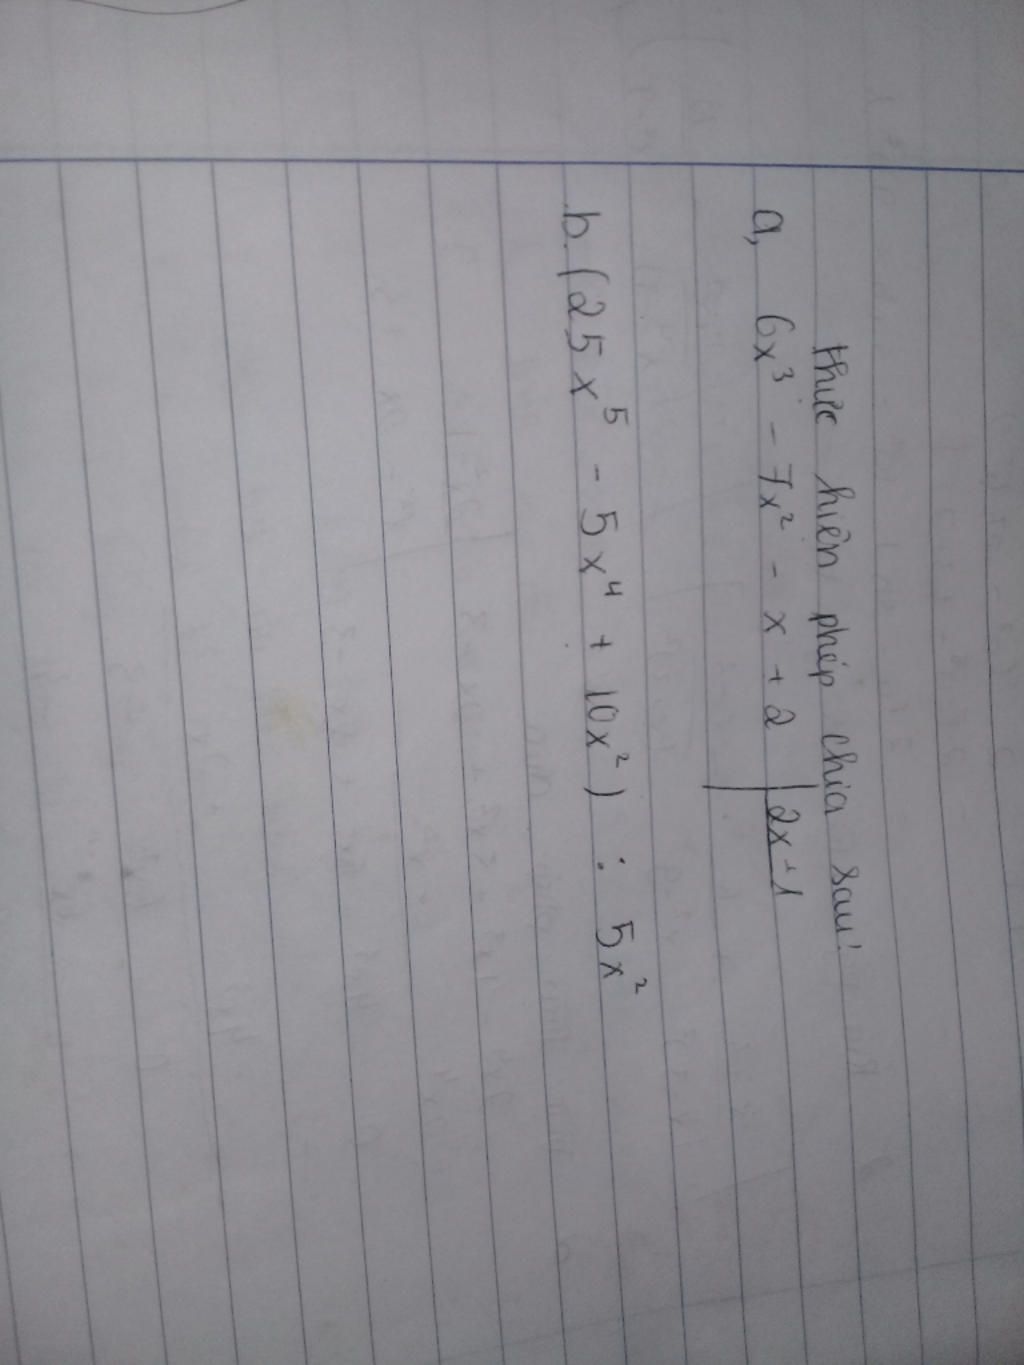 thực hiện phép chia sau!
a, 6x³ - 7x² - x + 2 | 2x+1
b. (25x⁵ - 5x⁴ + 10x²) : 5x²